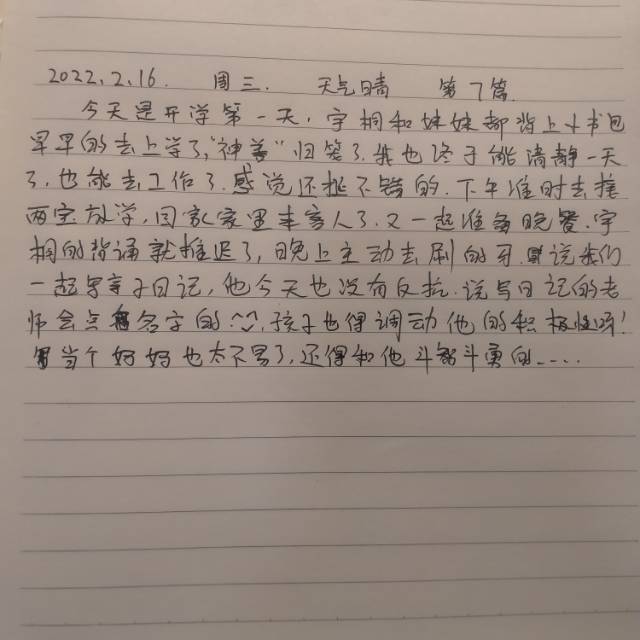 2022.2.16. 周三. 天气晴 第7篇.
今天是开学第一天,宇桐和妹妹都背上小书包
早早的去上学了,“神兽”归笼了.我也终于能清静一天
了,也能去工作了.感觉还挺不错的.下午准时去接
两宝放学,回家家里来客人了.又一起准备晚餐.宇
桐的背诵就推迟了,晚上主动去刷的牙.说我们
一起写亲子日记,他今天也没有反抗.说写日记的老
师会点名字的.孩子也得调动他的积极性呀!
当个好妈也太不易了,还得和他斗智斗勇的.....